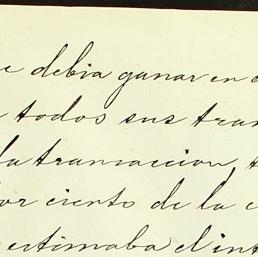 e debia ganar en
todos sus tran
la transaccion,
por ciento de la
estimaba el int